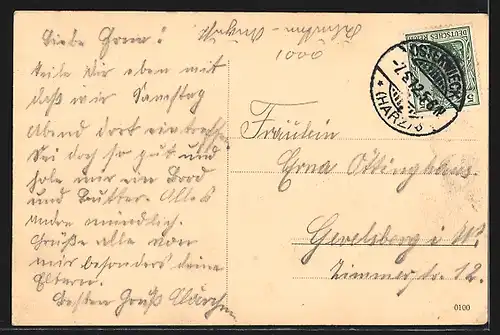 Liebe Erna!
Teile Dir eben mit
daß wir Samstag
Abend dort eintreffen.
Sei doch so gut und
hole mir ein Brod
und Butter. Alles
andre mündlich.
Grüße alle von
mir besonders deine
Eltern.
Besten Gruß Clärchen
1000
DEUTSCHES REICH
5
OSTERWIECK
(HARZ)
Fräulein
Erna Öttinghaus.
Gevelsberg i. W.
Zimmerstr. 12.
0100